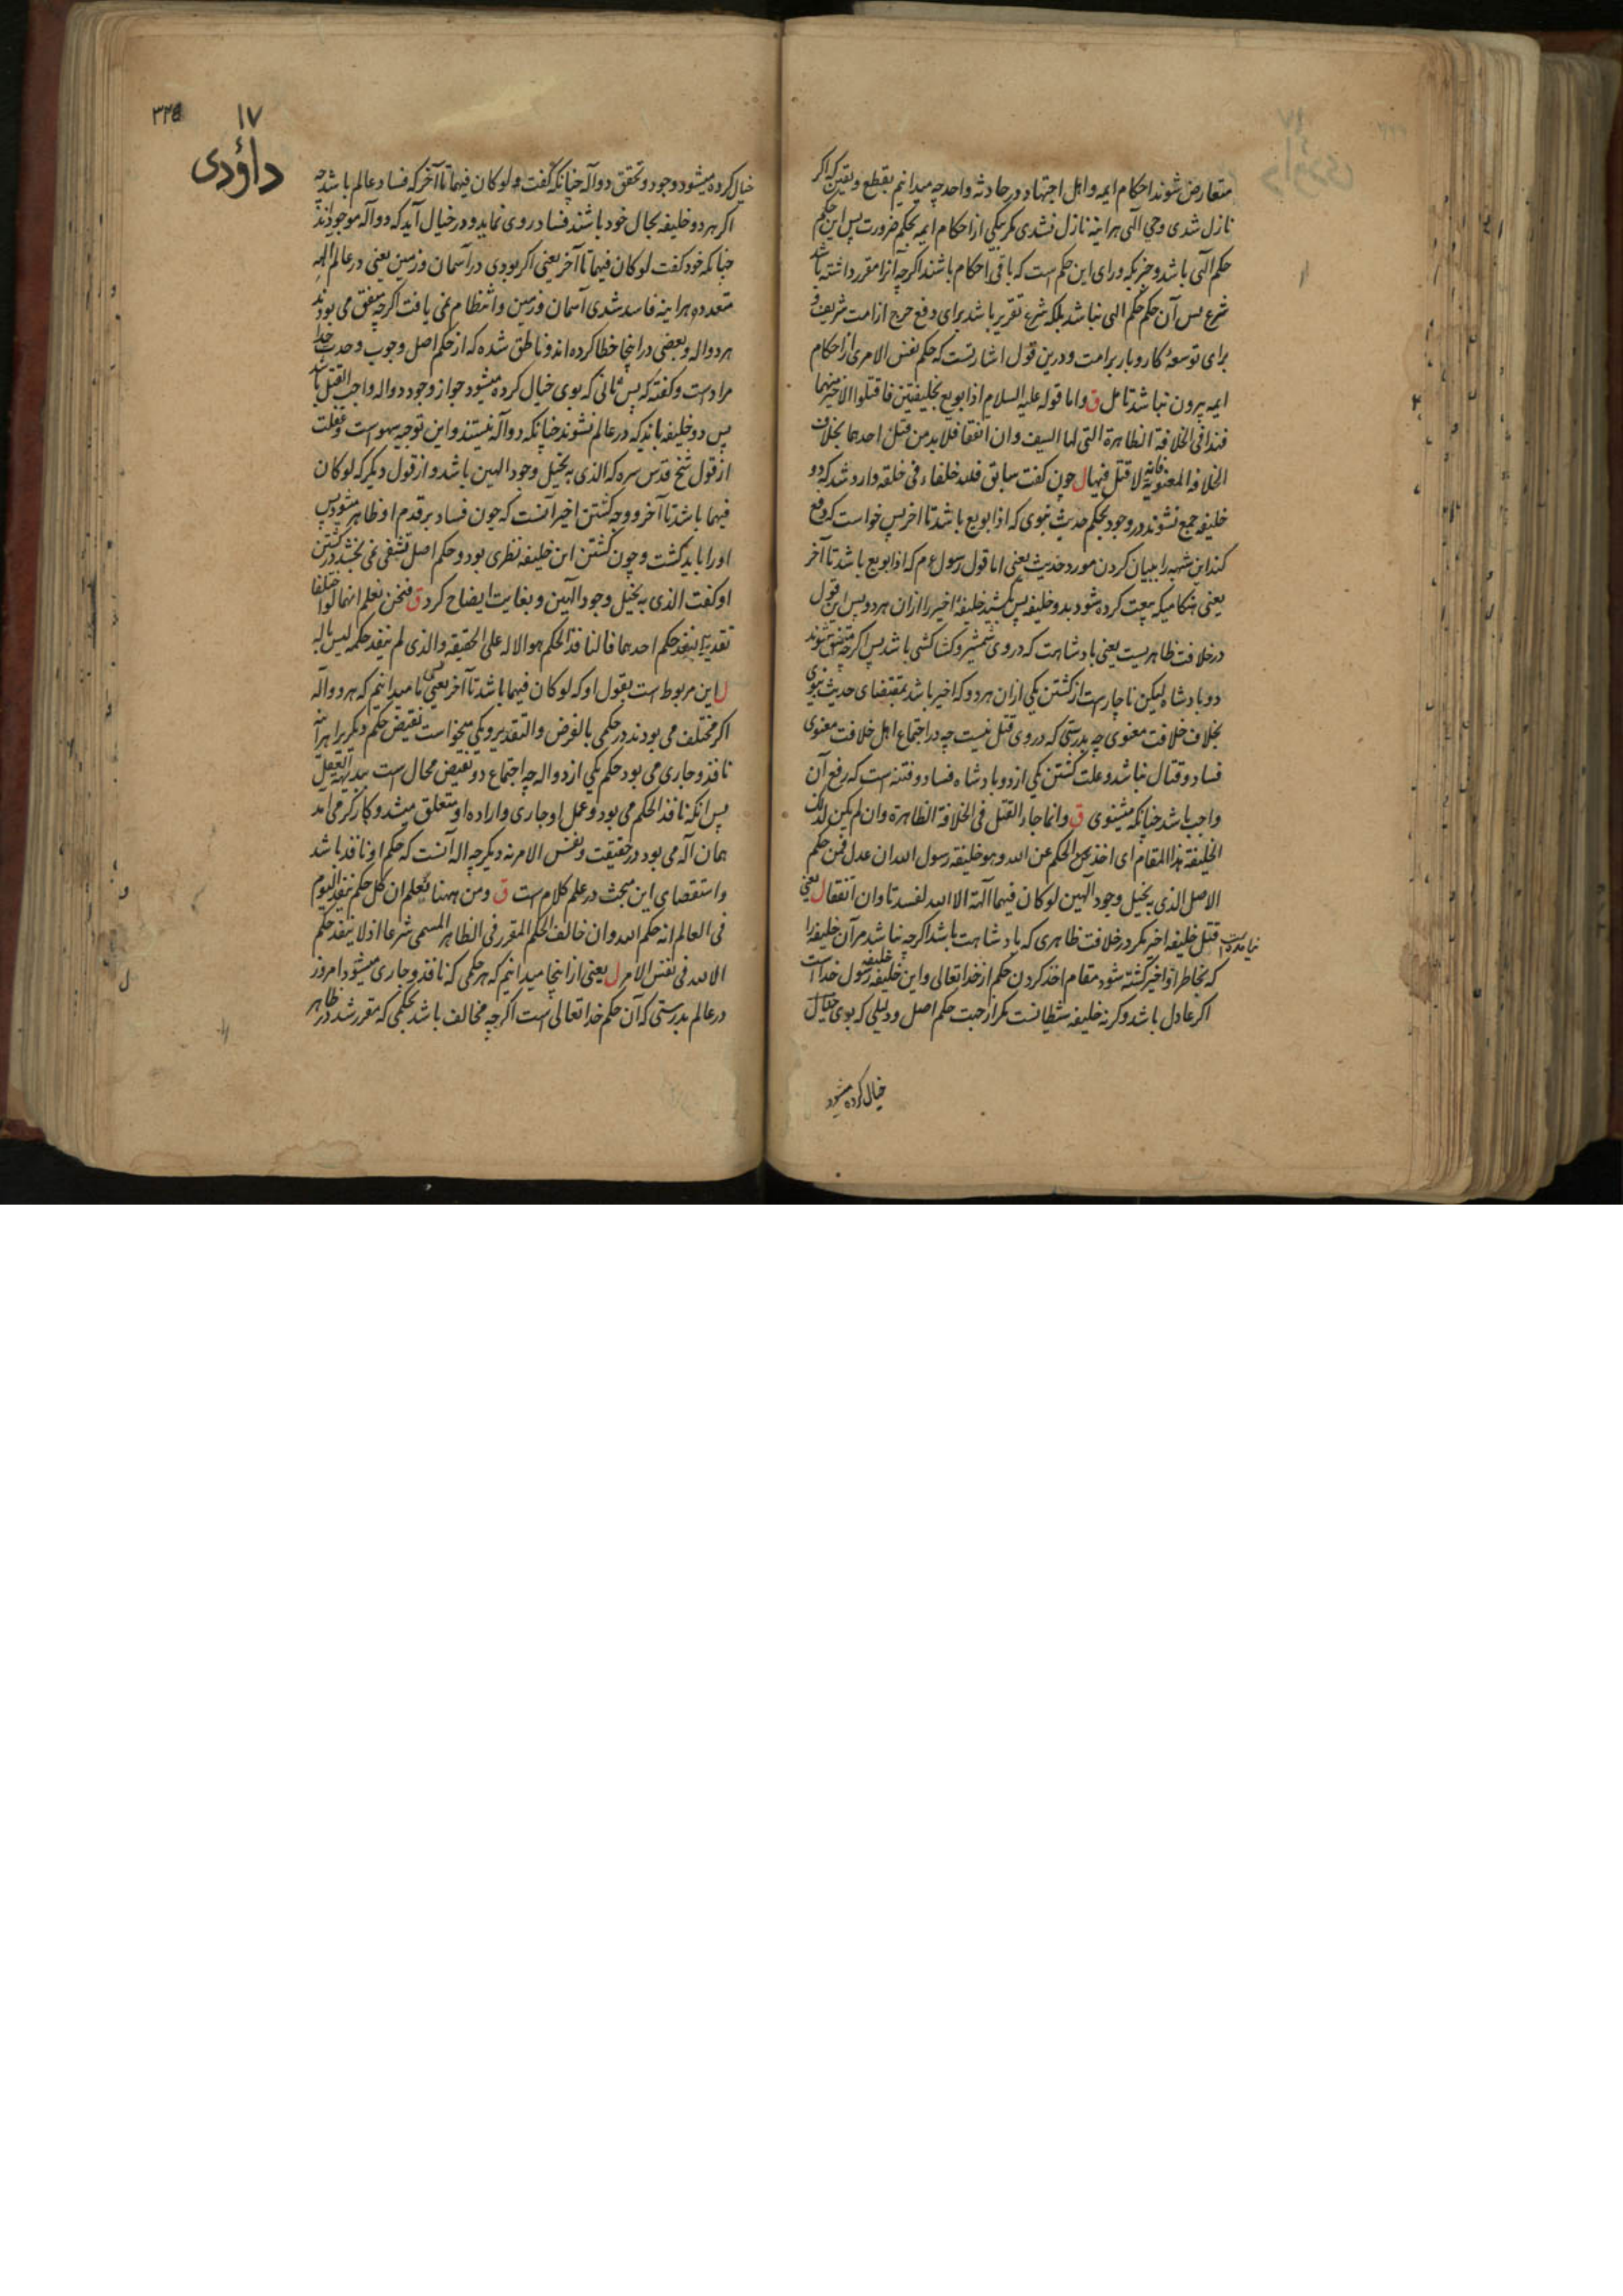 متعارض شوند احکام ایمه و اهل اجتهاد در حادثه واحد چه میدانیم بقطع و یقین که اکر
نازل شدی وحی الهی هراینه نازل نشدی مکر بیکی از احکام ایمه بحکم ضرورت پس این حکم
حکم الهی باشد و جزیکه ورای این حکم است که باقی احکام باشند اکرچه آنرا مقرر داشته باشد
شرع پس آن حکم حکم الهی نباشد بلکه شرع تقریر باشد برای دفع حرج از امت شریف و
برای توسعهٔ کاروبار بر امت و درین قول اشارتست که حکم نفس الامری از احکام
ایمه بیرون نباشد تامل ق و اما قوله علیه السلام اذا بویع بخلیفتین فاقتلوا الاخیر منهما
فهذا فی الخلافة الظاهرة التی لها السیف و ان اتفقا فلابد من قتل احدهما بخلاف
الخلافة المعنویة فانه لا قتل فیها ل چون کفت سابق فلله خلفاء فی خلقه وارد شد که دو
خلیفه جمع نشوند در وجود بحکم حدیث نبوی که اذا بویع باشد تا اخر پس خواست که دفع
کند این شبهه را ببیان کردن مورد حدیث یعنی اما قول رسول عم که اذا بویع باشد تا آخر
یعنی هنکامیکه بیعت کرده شود بدو خلیفه پس بکشید خلیفهٔ اخیر را ازان هردو پس این قول
در خلافت ظاهریست یعنی بادشاهت که در وی شمشیر و کشاکشی باشد پس اکرچه متفق شوند
دو بادشاه لیکن ناچارست از کشتن یکی ازان هردو که اخیر باشد بمقتضای حدیث نبوی
بخلاف خلافت معنوی چه بدرستی که در وی قتل نیست چه در اجتماع اهل خلافت معنوی
فساد و قتال نباشد و علت کشتن یکی از دو بادشاه فساد و فتنه است که رفع آن
واجب باشد چنانکه مثنوی ق و انما جاء القتل فی الخلافة الظاهرة و ان لم یکن لذلک
الخلیفة هذا المقام ای اخذ الحکم عن الله و هو خلیفة رسول الله ان عدل فمن حکم
الاصل الذی به تخیل وجود الهین لو کان فیهما آلهة الا الله لفسدتا و ان اتفقا ل یعنی
نیامده است قتل خلیفه اخیر مکر در خلافت ظاهری که بادشاهت باشد اکرچه نباشد مر آن خلیفه را
که بخاطر او اخیر کشته شود مقام اخذ کردن حکم از خدا تعالی و این خلیفه خلیفه رسول خداست
اکر عادل باشد و کرنه خلیفه شیطانست مکر از جهت حکم اصل و دلیلی که بوی خیال
خیال کرده میشود
۱۷
داؤدی
خیال کرده میشود وجود و تحقق دو آله چنانکه کفت و لو کان فیهما تا آخر که فساد عالم باشد چه
اکر هردو خلیفه بحال خود باشند فساد روی نماید و در خیال آید که دو آله موجودند
چنانکه خود کفت لو کان فیهما تا آخر یعنی اکر بودی در آسمان و زمین یعنی در عالم الهه
متعدده هراینه فاسد شدی آسمان و زمین و انتظام نمی یافت اکرچه متفق می بودند
هردو اله و بعضی در اینجا خطا کرده اند و ناطق شده که از حکم اصل وجوب وحدت خدا
مراد است و کفته که پس ثانی که بوی خیال کرده میشود جواز وجود دو اله واجب القتل باشد
پس دو خلیفه باید که در عالم نشوند چنانکه دو آله نیستند و این توجیه سهو است و غفلت
از قول شیخ قدس سره که الذی به یخیل وجود الهین باشد و از قول دیکر که لو کان
فیهما باشد تا آخر و وجه کشتن اخیر آنست که چون فساد بر قدم او ظاهر میشود پس
او را باید کشت و چون کشتن این خلیفه نظری بود و حکم اصل تشفی نمی بخشد در کشتن
او کفت الذی به یخیل وجود الهین و بغایت ایضاح کرد ق فنحن نعلم انهما لو اختلفا
تقدیرا لنفذ حکم احدهما فالنافذ الحکم هو الاله علی الحقیقة و الذی لم ینفذ حکمه لیس باله
ل این مربوط است بقول او که لو کان فیهما باشد تا آخر یعنی ما میدانیم که هردو آله
اکر مختلف می بودند در حکمی بالفرض و التقدیر و یکی میخواست نقیض حکم دیکر را هراینه
نافذ و جاری می بود حکم یکی از دو اله چه اجتماع دو نقیض محال است ببدیهه العقل
پس انکه نافذ الحکم می بود و عمل او جاری و اراده او متعلق میشد و کارکر می آمد
همان آله می بود در حقیقت و نفس الامر نه دیکر چه اله آنست که حکم او نافذ باشد
و استقصای این مبحث در علم کلام است ق و من ههنا نعلم ان کل حکم ینفذ الیوم
فی العالم انه حکم الله و ان خالف الحکم المقرر فی الظاهر المسمی شرعا اذ لا ینفذ حکم
الا لله فی نفس الامر ل یعنی از اینجا میدانیم که هر حکمی که نافذ و جاری میشود امروز
در عالم بدرستی که آن حکم خدا تعالی است اکرچه مخالف باشد بحکمی که مقرر شد در ظاهر